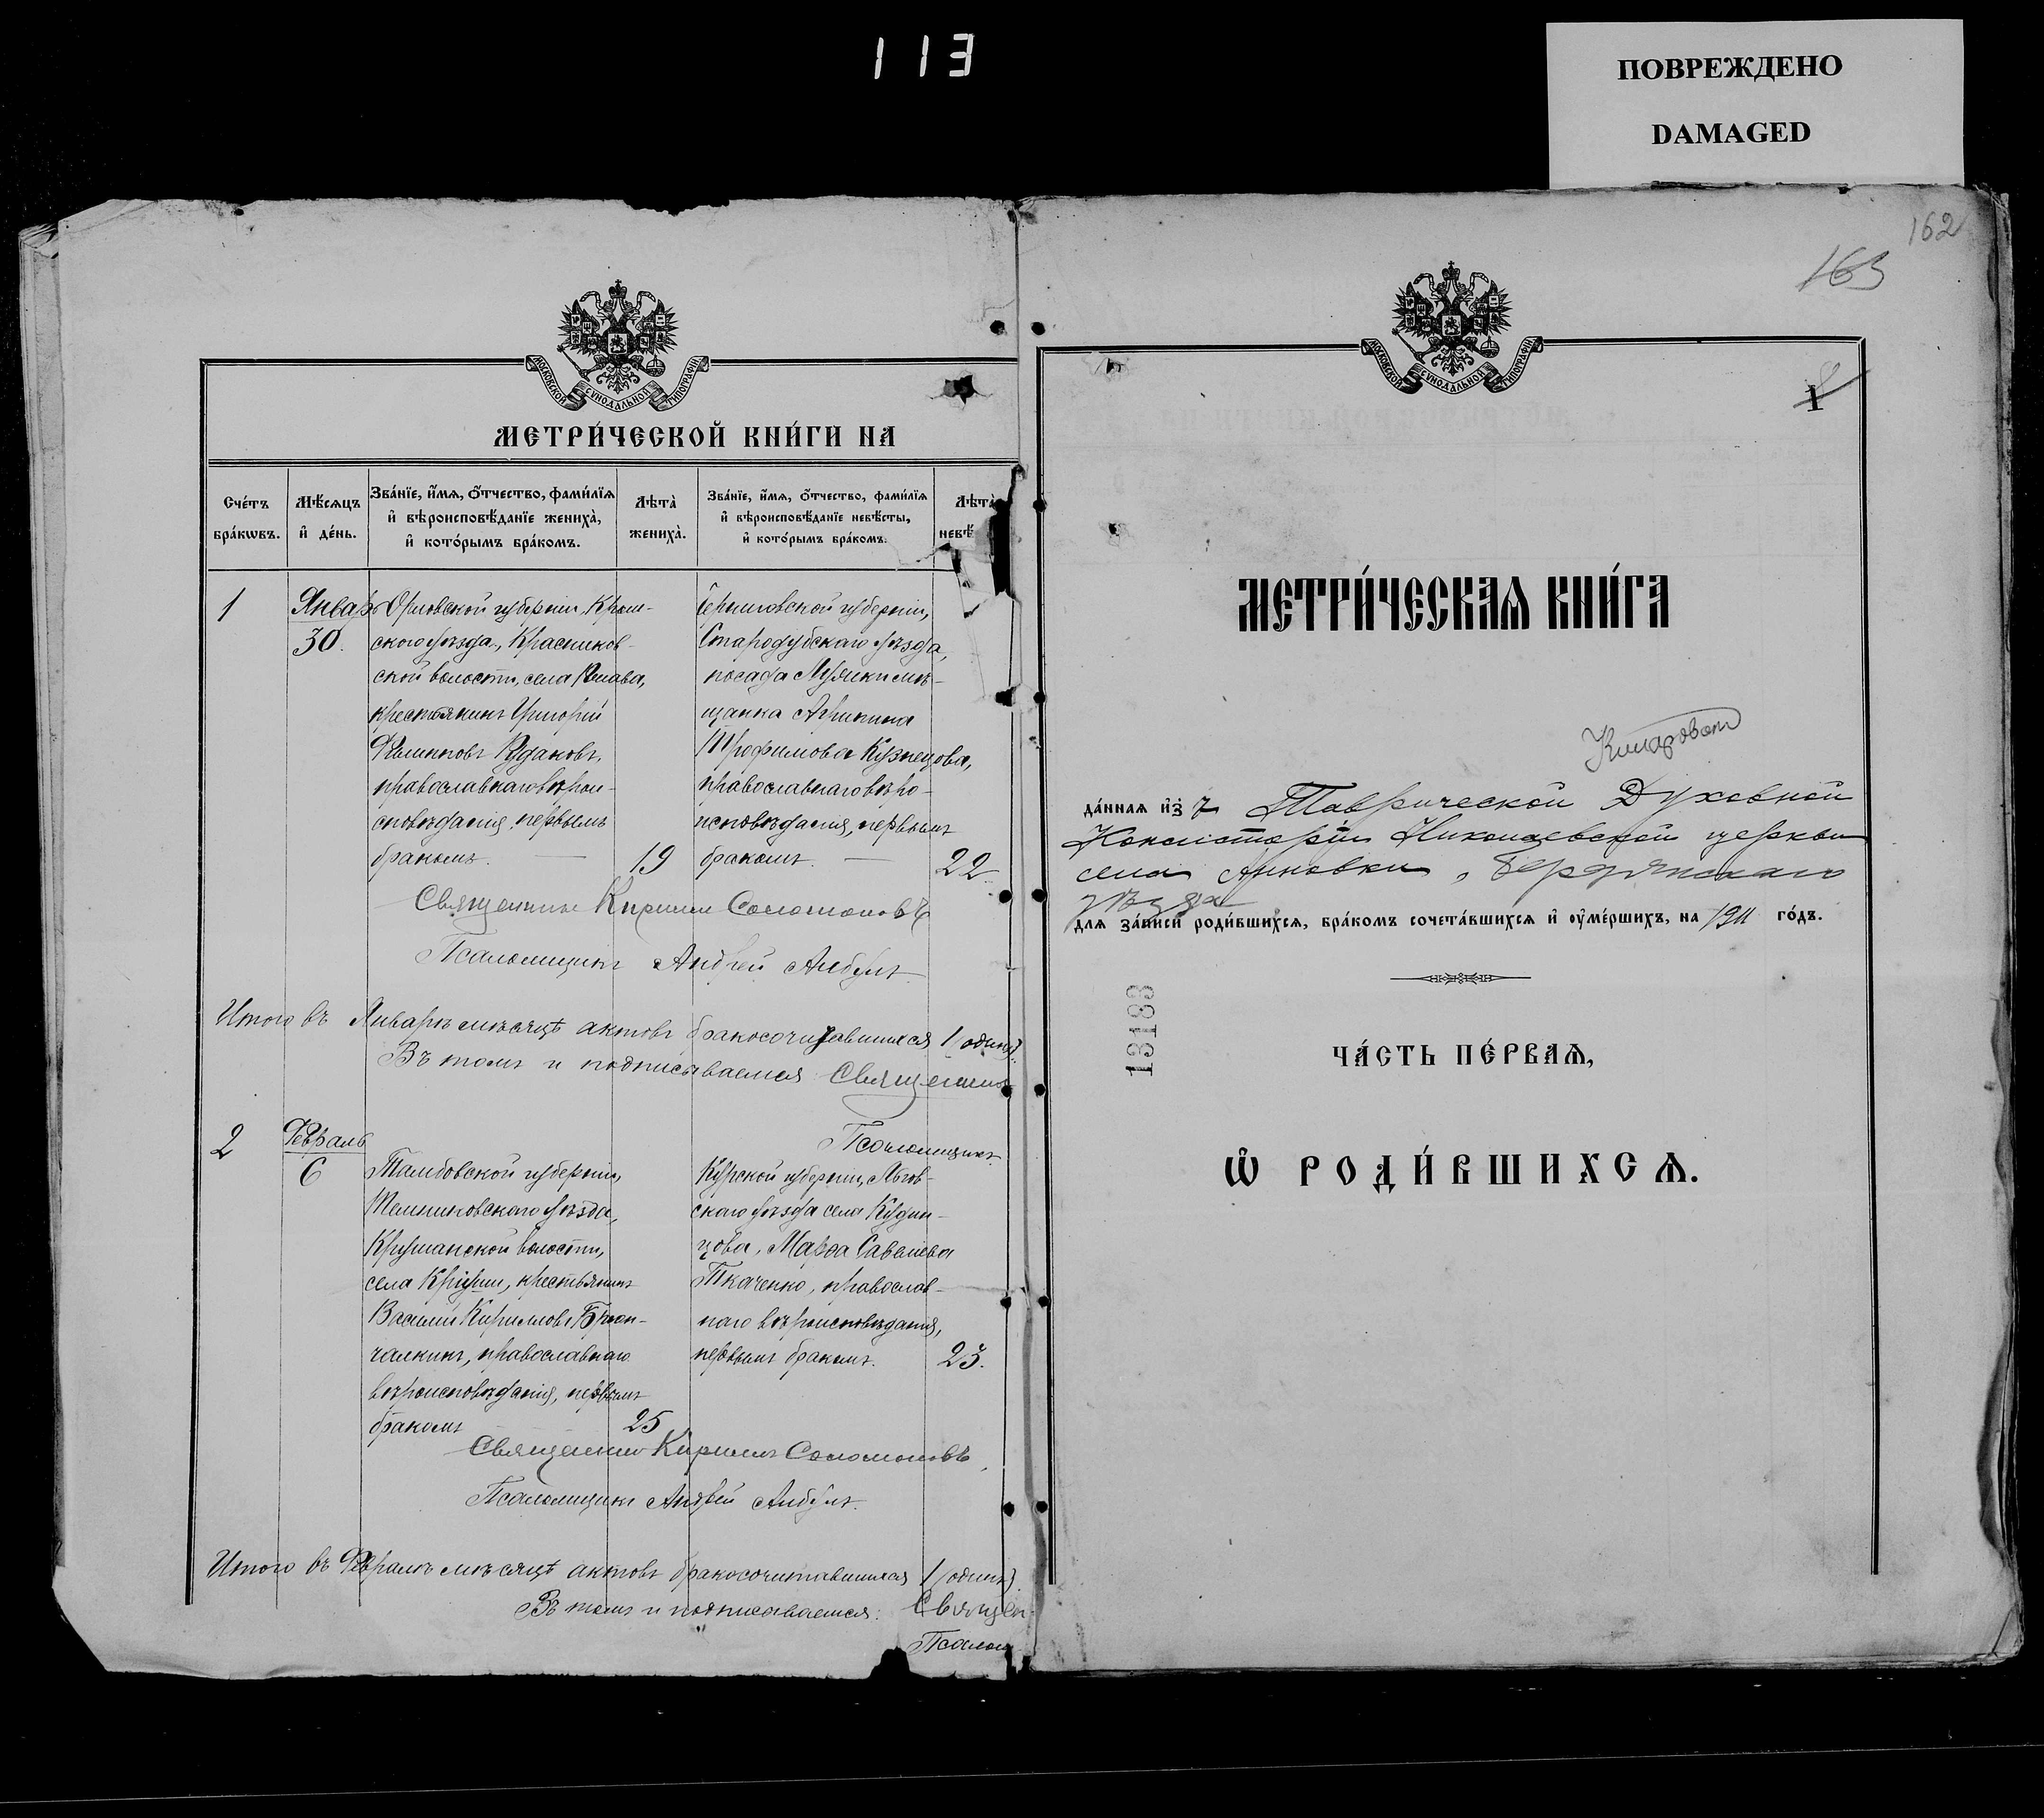 113
ПОВРЕЖДЕНО
DAMAGED
МОСКОВСКОЙ СѴНОДАЛЬНОЙ ТИПОГРАФІИ
МЕТРИ́ЧЕСКОЙ КНИ́ГИ НА
Сче́тъ бра́кѡвъ.
Мѣ́сяцъ и҆ де́нь.
Зва́нїе, и҆́мѧ, ѻ҆́тчество, фами́лїѧ
и҆ вѣроисповѣ́данїе жениха̀,
и҆ кото́рымъ бра́комъ.
Лѣта̀ жениха̀.
Зва́нїе, и҆́мѧ, ѻ҆́тчество, фами́лїѧ
и҆ вѣроисповѣ́данїе невѣ́сты,
и҆ кото́рымъ бра́комъ.
Лѣта̀ невѣ́
1
Январь
30.
Орловской губерніи, Кром-
скаго уѣзда, Красников-
ской волости, села
крестьянинъ Григорій
Рудаковъ,
православнаго вѣрои-
сповѣданія, первымъ
бракомъ.
19
Черниговской губерніи,
Стародубскаго уѣзда,
посада мѣ-
щанка Агрипина
Трофимова Кузнецова,
православнаго вѣро-
исповѣданія, первымъ
бракомъ.
22
Священникъ Кириллъ Соломоновъ
Псаломщикъ Андрей Албулъ
Итого въ Январѣ мѣсяцѣ актовъ бракосочитавшихся 1 (одинъ).
Въ томъ и подписываемся Священникъ
Псаломщикъ
2
Февраль
6
Тамбовской губерніи,
Темниковскаго уѣзда,
волости,
села крестьянинъ
Василій Кирилловъ
православнаго
вѣроисповѣданія, первымъ
бракомъ
25
Курской губерніи, Льгов-
скаго уѣзда села Кудин-
цова, Марѳа Савельева
Ткаченко, православ-
наго вѣроисповѣданія,
первымъ бракомъ.
23.
Священникъ Кириллъ Соломоновъ
Псаломщикъ Андрей Албулъ.
Итого въ Февралѣ мѣсяцѣ актовъ бракосочитавшихся 1 (одинъ).
Въ томъ и подписываемся: Священ
Псалом
162
163
МОСКОВСКОЙ СѴНОДАЛЬНОЙ ТИПОГРАФІИ
1
МЕТРИ́ЧЕСКАѦ КНИ́ГА
да́нная и҆з̾ Таврической Духовной
Консисторіи Николаевской церкви
села Анновки, Бердянскаго
уѣзда
для за́писи роди́вшихсѧ, бра́комъ сочета́вшихсѧ и҆ ᲂу҆ме́ршихъ, на 1911 го́дъ.
13183
ЧА́СТЬ ПЕ́РВАѦ,
Ѽ РОДИ́ВШИХСѦ.